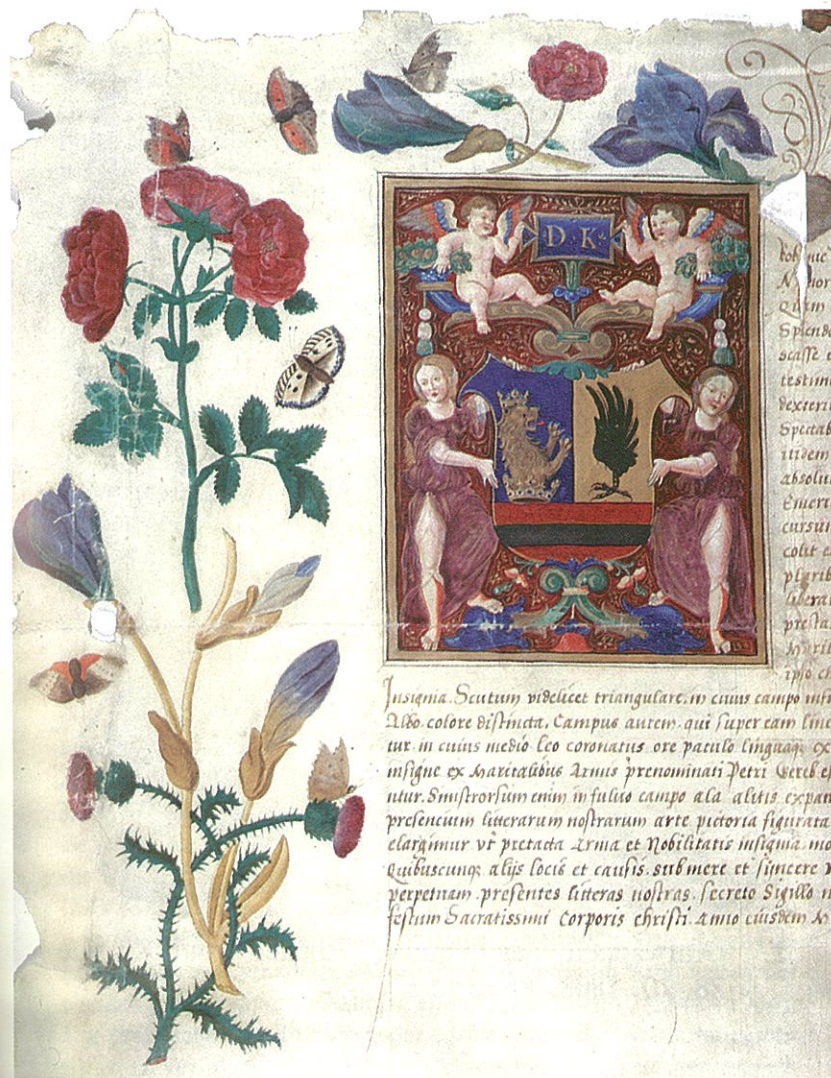 D · K
Quem
Splende
testim
dexteri
Spectab
itidem
absolu
Emeri
cursu
colit
plurib
libera
presta
Marit
ipso
Insignia. Scutum videlicet triangulare, in cuius campo
Albo colore distincta, Campus autem, qui super eam line
tur, in cuius medio Leo coronatus ore patulo linguaq; ex
insigne ex Maritalibus Armis prenominati Petri Gereb
ntur. Sinistrorsum enim in fuluo campo ala alitis expan
presencium litterarum nostrarum arte pictoria figurata
elargimur vt pretacta Arma et Nobilitatis insignia mo
Quibuscunq; alijs locis et causis. sub mere et sincere
perpetuam. presentes litteras nostras. secreto Sigillo
festum Sacratissimi Corporis christi Anno eiusdem